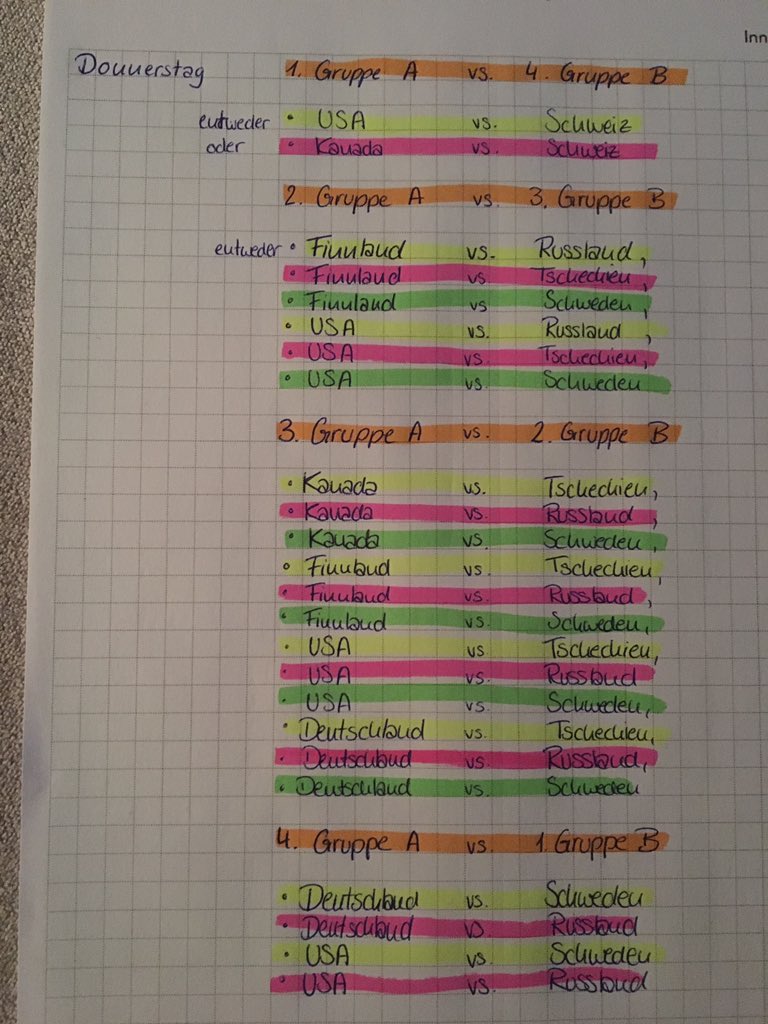 Inn
Donnerstag 1. Gruppe A vs. 4. Gruppe B
entweder • USA vs. Schweiz
oder • Kanada vs. Schweiz
2. Gruppe A vs. 3. Gruppe B
entweder • Finnland vs. Russland,
• Finnland vs. Tschechien,
• Finnland vs Schweden,
• USA vs. Russland,
• USA vs. Tschechien,
• USA vs. Schweden
3. Gruppe A vs. 2. Gruppe B
• Kanada vs. Tschechien,
• Kanada vs. Russland,
• Kanada vs. Schweden,
• Finnland vs. Tschechien,
• Finnland vs. Russland,
• Finnland vs. Schweden,
• USA vs Tschechien,
• USA vs. Russland
• USA vs. Schweden,
• Deutschland vs. Tschechien,
• Deutschland vs. Russland,
• Deutschland vs. Schweden
4. Gruppe A vs. 1. Gruppe B
• Deutschland vs. Schweden
• Deutschland vs. Russland
• USA vs. Schweden
• USA vs. Russland